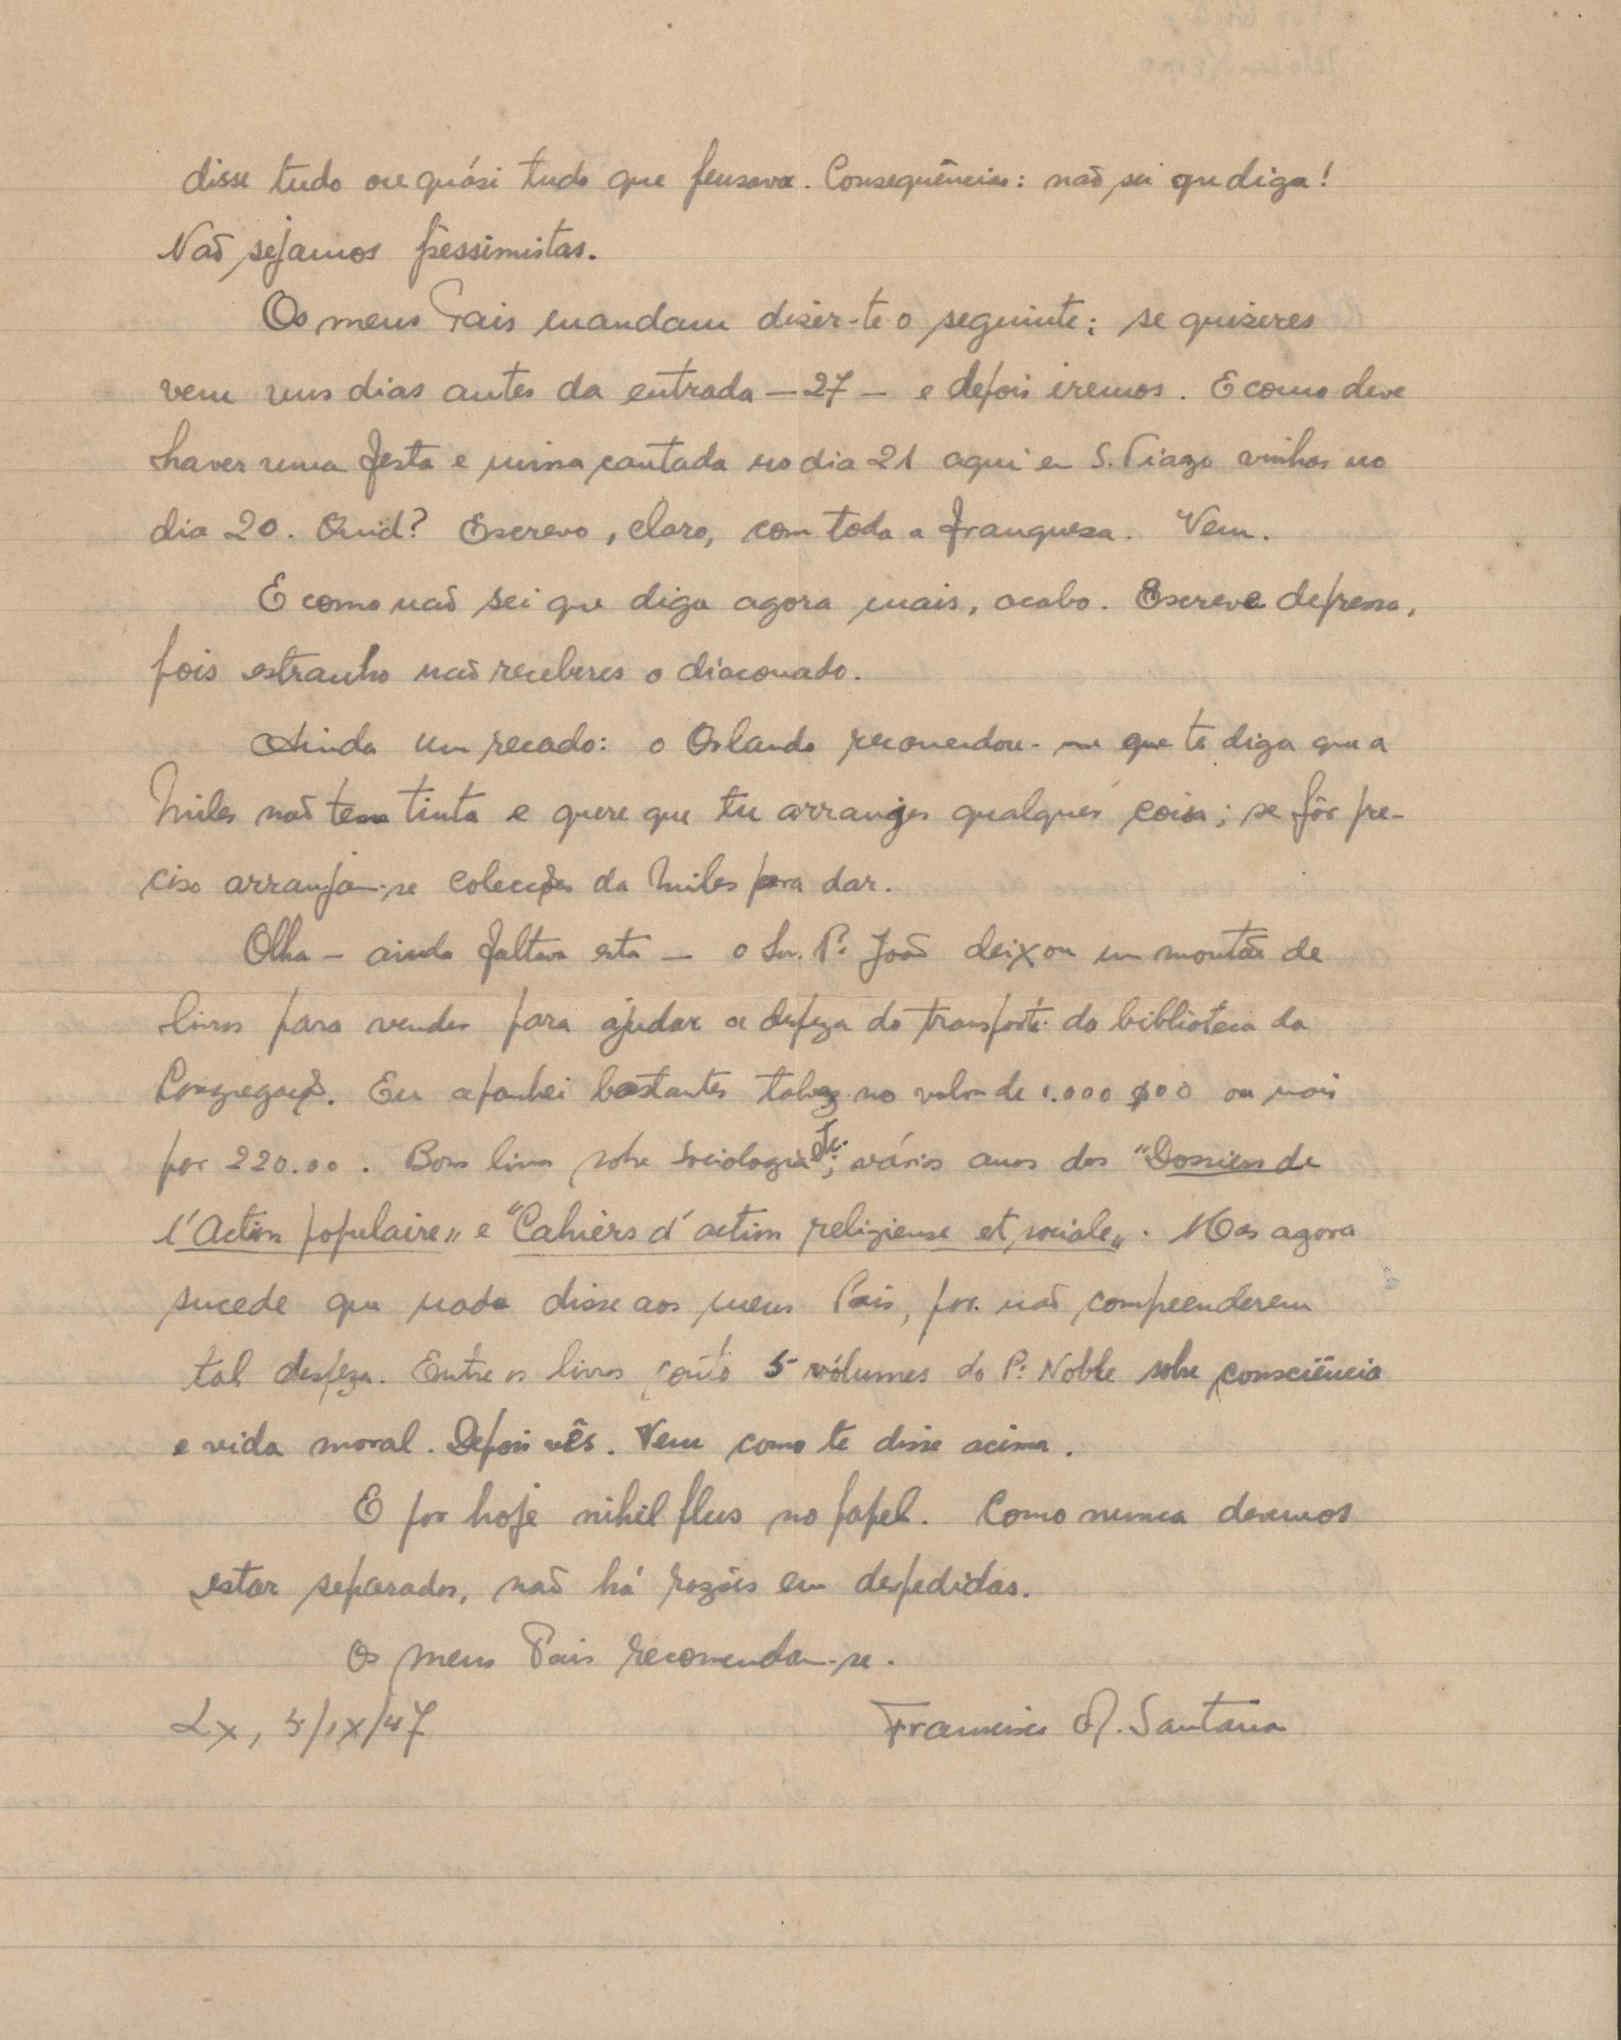 disse tudo ou quási tudo que pensava. Consequências: não sei que diga!
Não sejamos pessimistas.
Os meus Pais mandam dizer-te o seguinte: se quizeres
vem uns dias antes da entrada — 27 — e depois iremos. E como deve
haver uma festa e missa cantada no dia 21 aqui em S. Tiago vinhas no
dia 20. Quid? Escrevo, claro, com toda a franqueza. Vem.
E como não sei que diga agora mais, acabo. Escreve depressa,
pois estranho não receberes o diaconado.
Ainda um recado: o Orlando recomendou-me que te diga que a
Miles não tem tinta e quere que tu arranjes qualquer coisa; se fôr pre-
ciso arranjam-se colecções da Miles para dar.
Olha — ainda faltava esta — o Snr. P.e João deixou um montão de
livros para vender para ajudar a despeza do transporte da biblioteca da
Congregação. Eu apanhei bastantes talvez no valor de 1.000$00 ou mais
por 220.00. Bons livros sobre Sociologia etc.; vários anos dos "Dossiers de
l'Action populaire" e "Cahiers d'action religieuse et sociale". Mas agora
sucede que nada disse aos meus Pais, por não compreenderem
tal despeza. Entre os livros conto 5 vólumes do P.e Noble sobre consciência
e vida moral. Depois vês. Vem como te disse acima.
E por hoje nihil plus no papel. Como nunca devemos
estar separados, não há razões em despedidas.
Os meus Pais recomendam-se.
Lx, 5/IX/47 Francisco A. Santana